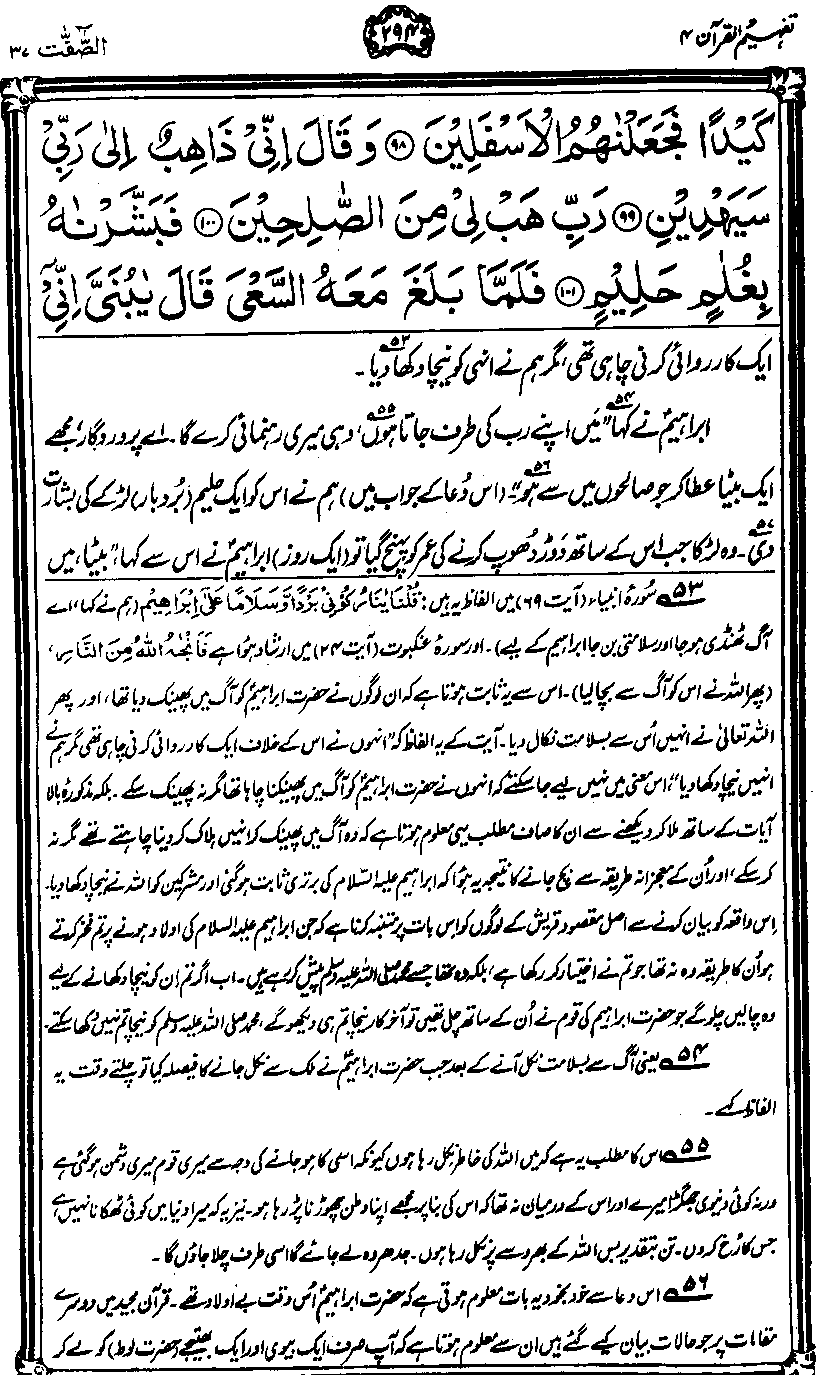 تفہیم القرآن ۴
۲۹۴
الصّٰفّٰت ۳۷
كَيْدًا فَجَعَلْنٰهُمُ الْاَسْفَلِيْنَ ﴿۹۸﴾ وَقَالَ اِنِّيْ ذَاهِبٌ اِلٰى رَبِّيْ
سَيَهْدِيْنِ ﴿۹۹﴾ رَبِّ هَبْ لِيْ مِنَ الصّٰلِحِيْنَ ﴿۱۰۰﴾ فَبَشَّرْنٰهُ
بِغُلٰمٍ حَلِيْمٍ ﴿۱۰۱﴾ فَلَمَّا بَلَغَ مَعَهُ السَّعْيَ قَالَ يٰبُنَيَّ اِنِّيْٓ
ایک کارروائی کرنی چاہی تھی، مگر ہم نے انہی کو نیچا دکھا دیا۵۳۔
ابراہیمؑ نے کہا۵۴ "میں اپنے رب کی طرف جاتا ہوں۵۵، وہی میری رہنمائی کرے گا۔ اے پروردگار، مجھے
ایک بیٹا عطا کر جو صالحوں میں سے ہو۵۶"۔ (اس دُعا کے جواب میں) ہم نے اس کو ایک حلیم (بُردبار) لڑکے کی بشارت
دی۵۷۔ وہ لڑکا جب اس کے ساتھ دَوڑ دُھوپ کرنے کی عمر کو پہنچ گیا تو (ایک روز) ابراہیمؑ نے اس سے کہا، "بیٹا، میں
۵۳ سُورۂ انبیاء (آیت ۶۹) میں الفاظ یہ ہیں: قُلْنَا يٰنَارُ كُوْنِيْ بَرْدًا وَّسَلَامًا عَلٰٓى اِبْرَاهِيْمَ (ہم نے کہا، اے
آگ ٹھنڈی ہو جا اور سلامتی بن جا ابراہیم کے لیے)۔ اور سورۂ عنکبوت (آیت ۲۴) میں ارشاد ہوا ہے فَاَنْجٰهُ اللّٰهُ مِنَ النَّاسِ،
(پھر اللہ نے اس کو آگ سے بچا لیا)۔ اس سے یہ ثابت ہوتا ہے کہ ان لوگوں نے حضرت ابراہیمؑ کو آگ میں پھینک دیا تھا، اور پھر
اللہ تعالیٰ نے انہیں اُس سے بسلامت نکال دیا۔ آیت کے یہ الفاظ کہ "انہوں نے اس کے خلاف ایک کارروائی کرنی چاہی تھی مگر ہم نے
انہیں نیچا دکھا دیا"، اس معنی میں نہیں لیے جا سکتے کہ انہوں نے حضرت ابراہیمؑ کو آگ میں پھینکنا چاہا تھا مگر نہ پھینک سکے۔ بلکہ مذکورۂ بالا
آیات کے ساتھ ملا کر دیکھنے سے ان کا صاف مطلب یہی معلوم ہوتا ہے کہ وہ آگ میں پھینک کر انہیں ہلاک کر دینا چاہتے تھے مگر نہ
کر سکے، اور اُن کے معجزانہ طریقہ سے بچ جانے کا نتیجہ یہ ہُوا کہ ابراہیم علیہ السلام کی برتری ثابت ہو گئی اور مشرکین کو اللہ نے نیچا دکھا دیا۔
اِس واقعہ کو بیان کرنے سے اصل مقصود قریش کے لوگوں کو اِس بات پر متنبہ کرنا ہے کہ جن ابراہیم علیہ السلام کی اولاد ہونے پر تم فخر کرتے
ہو اُن کا طریقہ وہ نہ تھا جو تم نے اختیار کر رکھا ہے، بلکہ وہ تھا جسے محمد صلی اللہ علیہ وسلم پیش کر رہے ہیں۔ اب اگر تم اِن کو نیچا دکھانے کے لیے
وہ چالیں چلو گے جو حضرت ابراہیم کی قوم نے اُن کے ساتھ چلی تھیں تو آخر کار نیچا تم ہی دیکھو گے، محمد صلی اللہ علیہ وسلم کو نیچا تم نہیں دکھا سکتے۔
۵۴ یعنی آگ سے بسلامت نکل آنے کے بعد جب حضرت ابراہیمؑ نے ملک سے نکل جانے کا فیصلہ کیا تو چلتے وقت یہ
الفاظ کہے۔
۵۵ اس کا مطلب یہ ہے کہ میں اللہ کی خاطر نکل رہا ہوں کیونکہ اسی کا ہو جانے کی وجہ سے میری قوم میری دشمن ہو گئی ہے
ورنہ کوئی دنیوی جھگڑا میرے اور اس کے درمیان نہ تھا کہ اس کی بنا پر مجھے اپنا وطن چھوڑنا پڑ رہا ہو۔ نیز یہ کہ میرا دنیا میں کوئی ٹھکانا نہیں ہے
جس کا رُخ کروں۔ تن بتقدیر بس اللہ کے بھروسے پر نکل رہا ہوں۔ جدھر وہ لے جائے گا اسی طرف چلا جاؤں گا۔
۵۶ اس دعا سے خود بخود یہ بات معلوم ہوتی ہے کہ حضرت ابراہیمؑ اُس وقت بے اولاد تھے۔ قرآن مجید میں دوسرے
مقامات پر جو حالات بیان کیے گئے ہیں ان سے معلوم ہوتا ہے کہ آپ صرف ایک بیوی اور ایک بھتیجے (حضرت لوط) کو لے کر